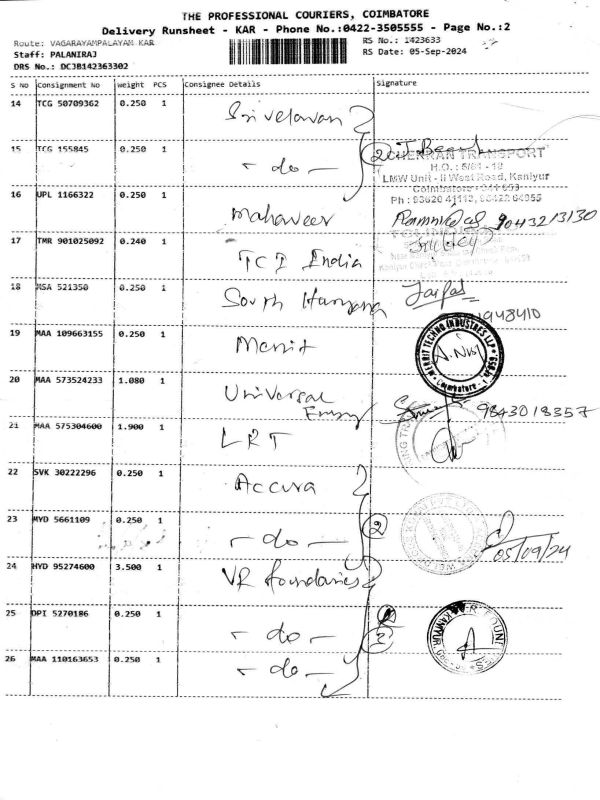 THE PROFESSIONAL COURIERS, COIMBATORE
Delivery Runsheet - KAR - Phone No.:0422-3505555 - Page No.:2
Route: VAGARAYAMPALAYAM KAR
RS No.: 1423633
Staff: PALANIRAJ
RS Date: 05-Sep-2024
DRS No.: DCJB142363302
S No Consignment No weight PCS Consignee Details Signature
14 TCG 50709362 0.250 1 Sri velavan
15 TCG 155845 0.250 1 - do - 2
CHENRAN TRANSPORT
LMW Unit - II West Road, Kaniyur
16 UPL 1166322 0.250 1 Mahaveer 9043213130
17 TMR 901025092 0.240 1 TCI India
18 MSA 521350 0.250 1 South Haryana
1948410
19 MAA 109663155 0.250 1 Merrit
MERRIT TECHNO INDUSTRIES LLP
20 MAA 573524233 1.080 1 Universal
Energy 9843018357
21 MAA 575304600 1.900 1 LRT
22 SVK 30222296 0.250 1 Accura
23 MYD 5661109 0.250 1 - do - 2
05/09/24
24 HYD 95274600 3.500 1 VR foundaries
25 DPI 5270186 0.250 1 - do - 3
26 MAA 110163653 0.250 1 - do -